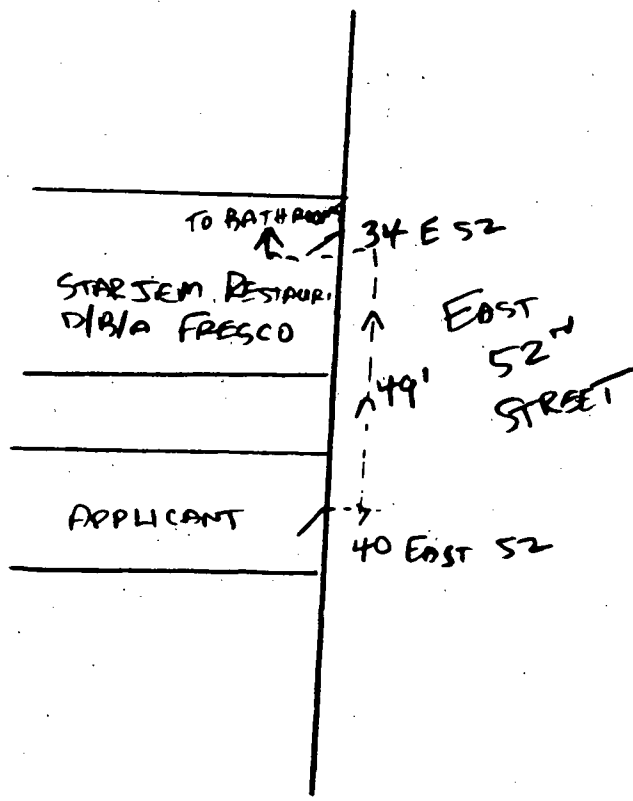 TO BATHROOM
34 E 52
STARJEM RESTAUR.
D/B/A FRESCO
EAST
52nd
STREET
49'
APPLICANT
40 EAST 52